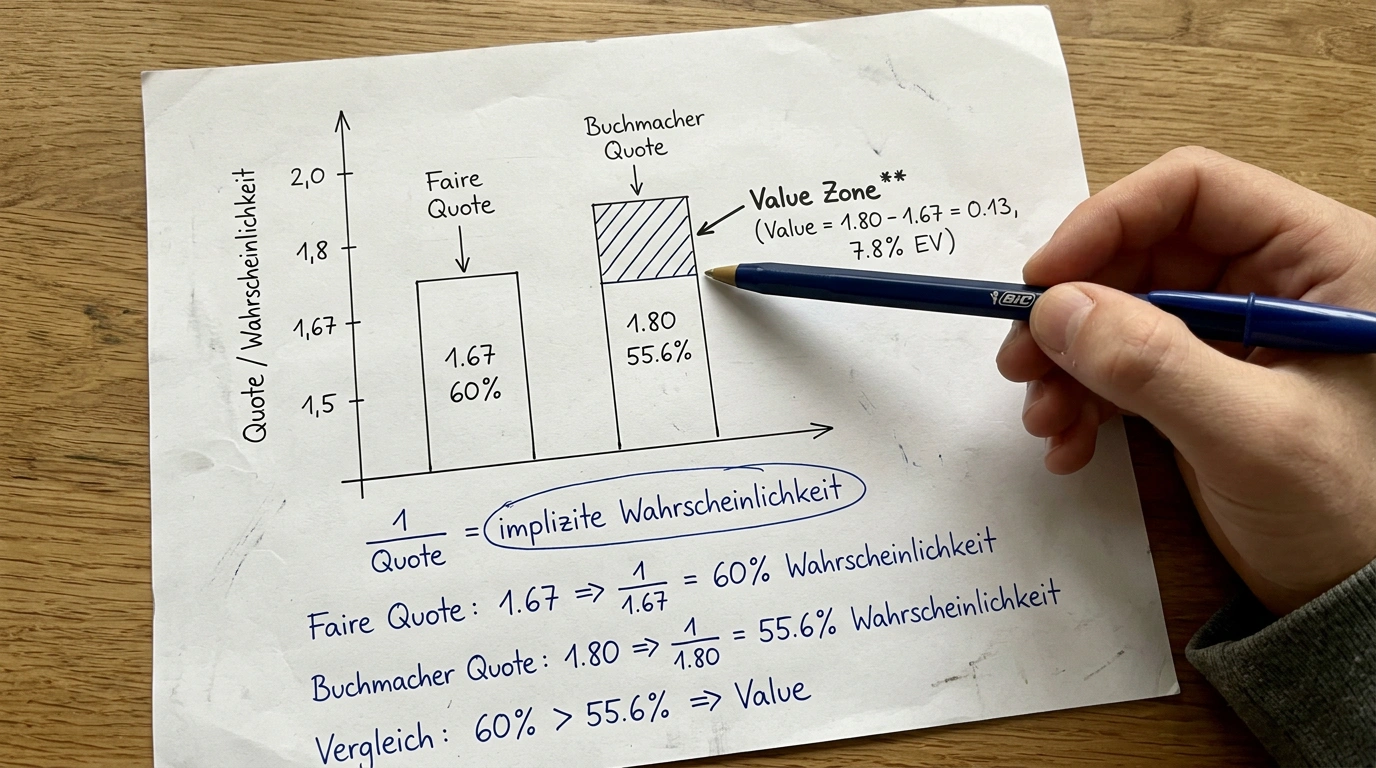 Quote / Wahrscheinlichkeit
2,0
1,8
1,67
1,5
Faire
Quote
1.67
60%
Buchmacher
Quote
1.80
55.6%
Value Zone**
(Value = 1.80 - 1.67 = 0.13,
7.8% EV)
BIC
1/Quote = implizite Wahrscheinlichkeit
Faire Quote: 1.67 => 1/1.67 = 60% Wahrscheinlichkeit
Buchmacher Quote: 1.80 => 1/1.80 = 55.6% Wahrscheinlichkeit
Vergleich: 60% > 55.6% => Value